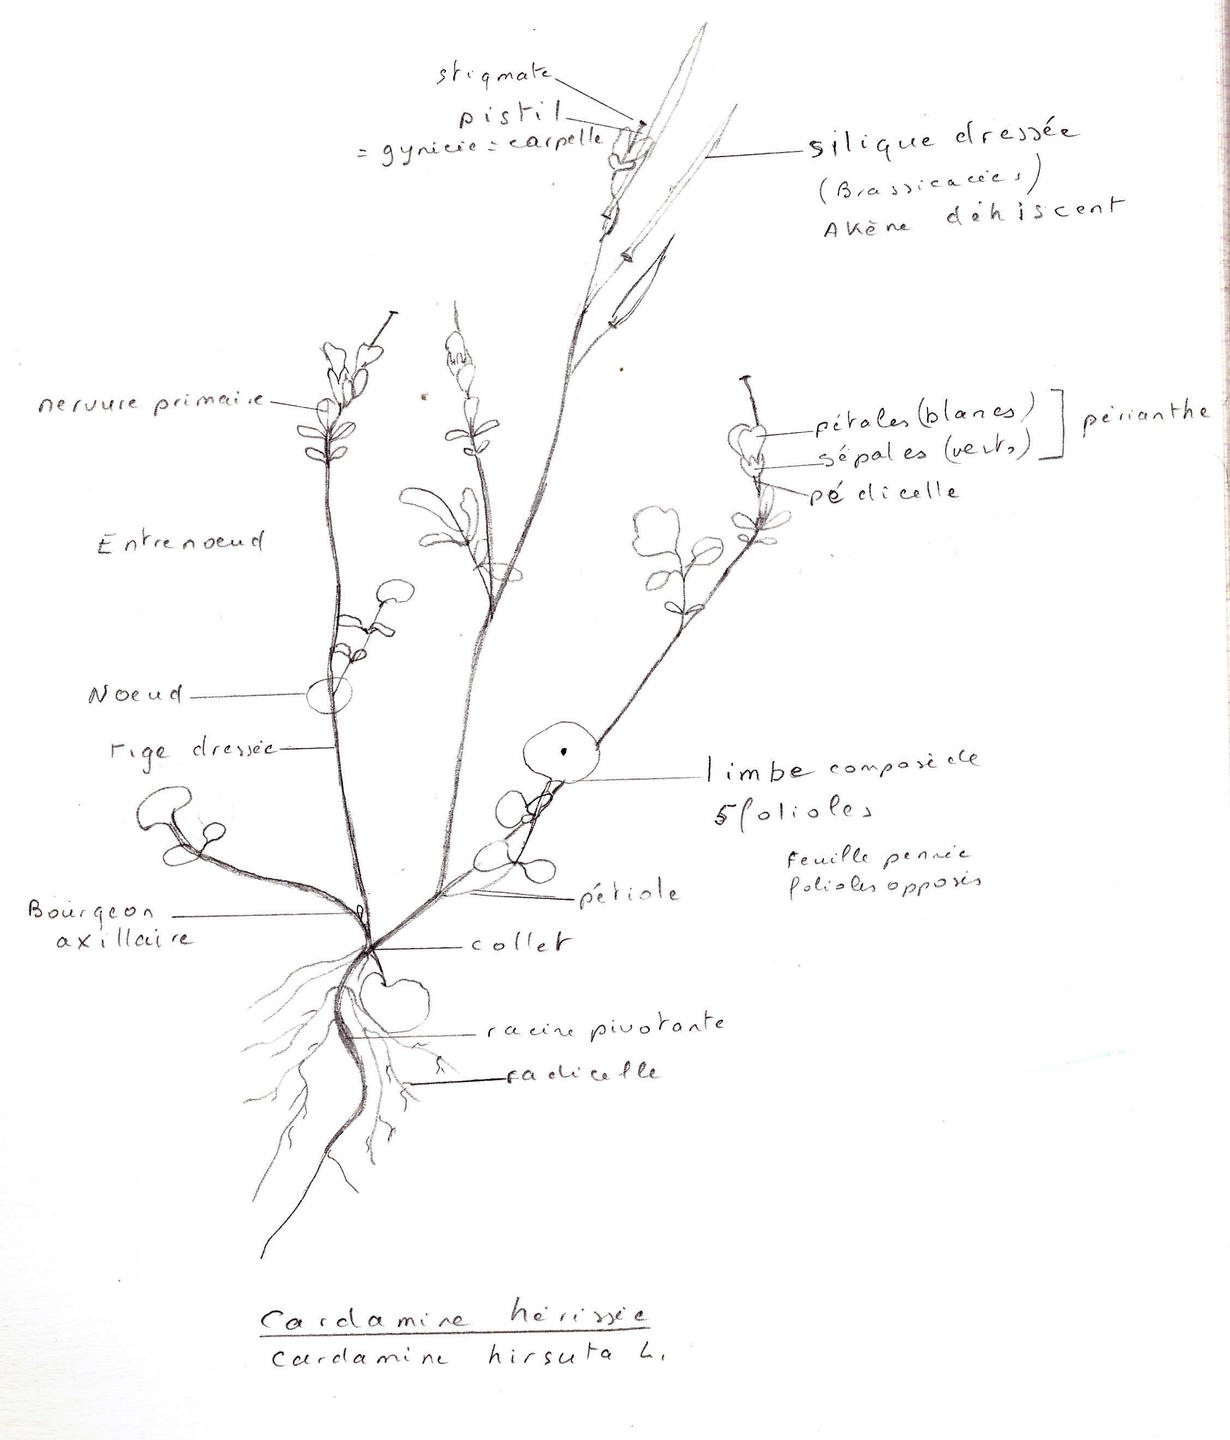 stigmate
pistil
= gynicie = carpelle
silique dressée
(Brassicacées)
Akène déhiscent
nervure primaire
pétales (blancs)
sépales (verts)
périanthe
pédicelle
Entrenoeud
Noeud
Tige dressée
limbe composé de
5 folioles
Feuille pennée
folioles opposés
pétiole
Bourgeon
axillaire
collet
racine pivotante
radicelle
Cardamine hérissée
Cardamine hirsuta L.